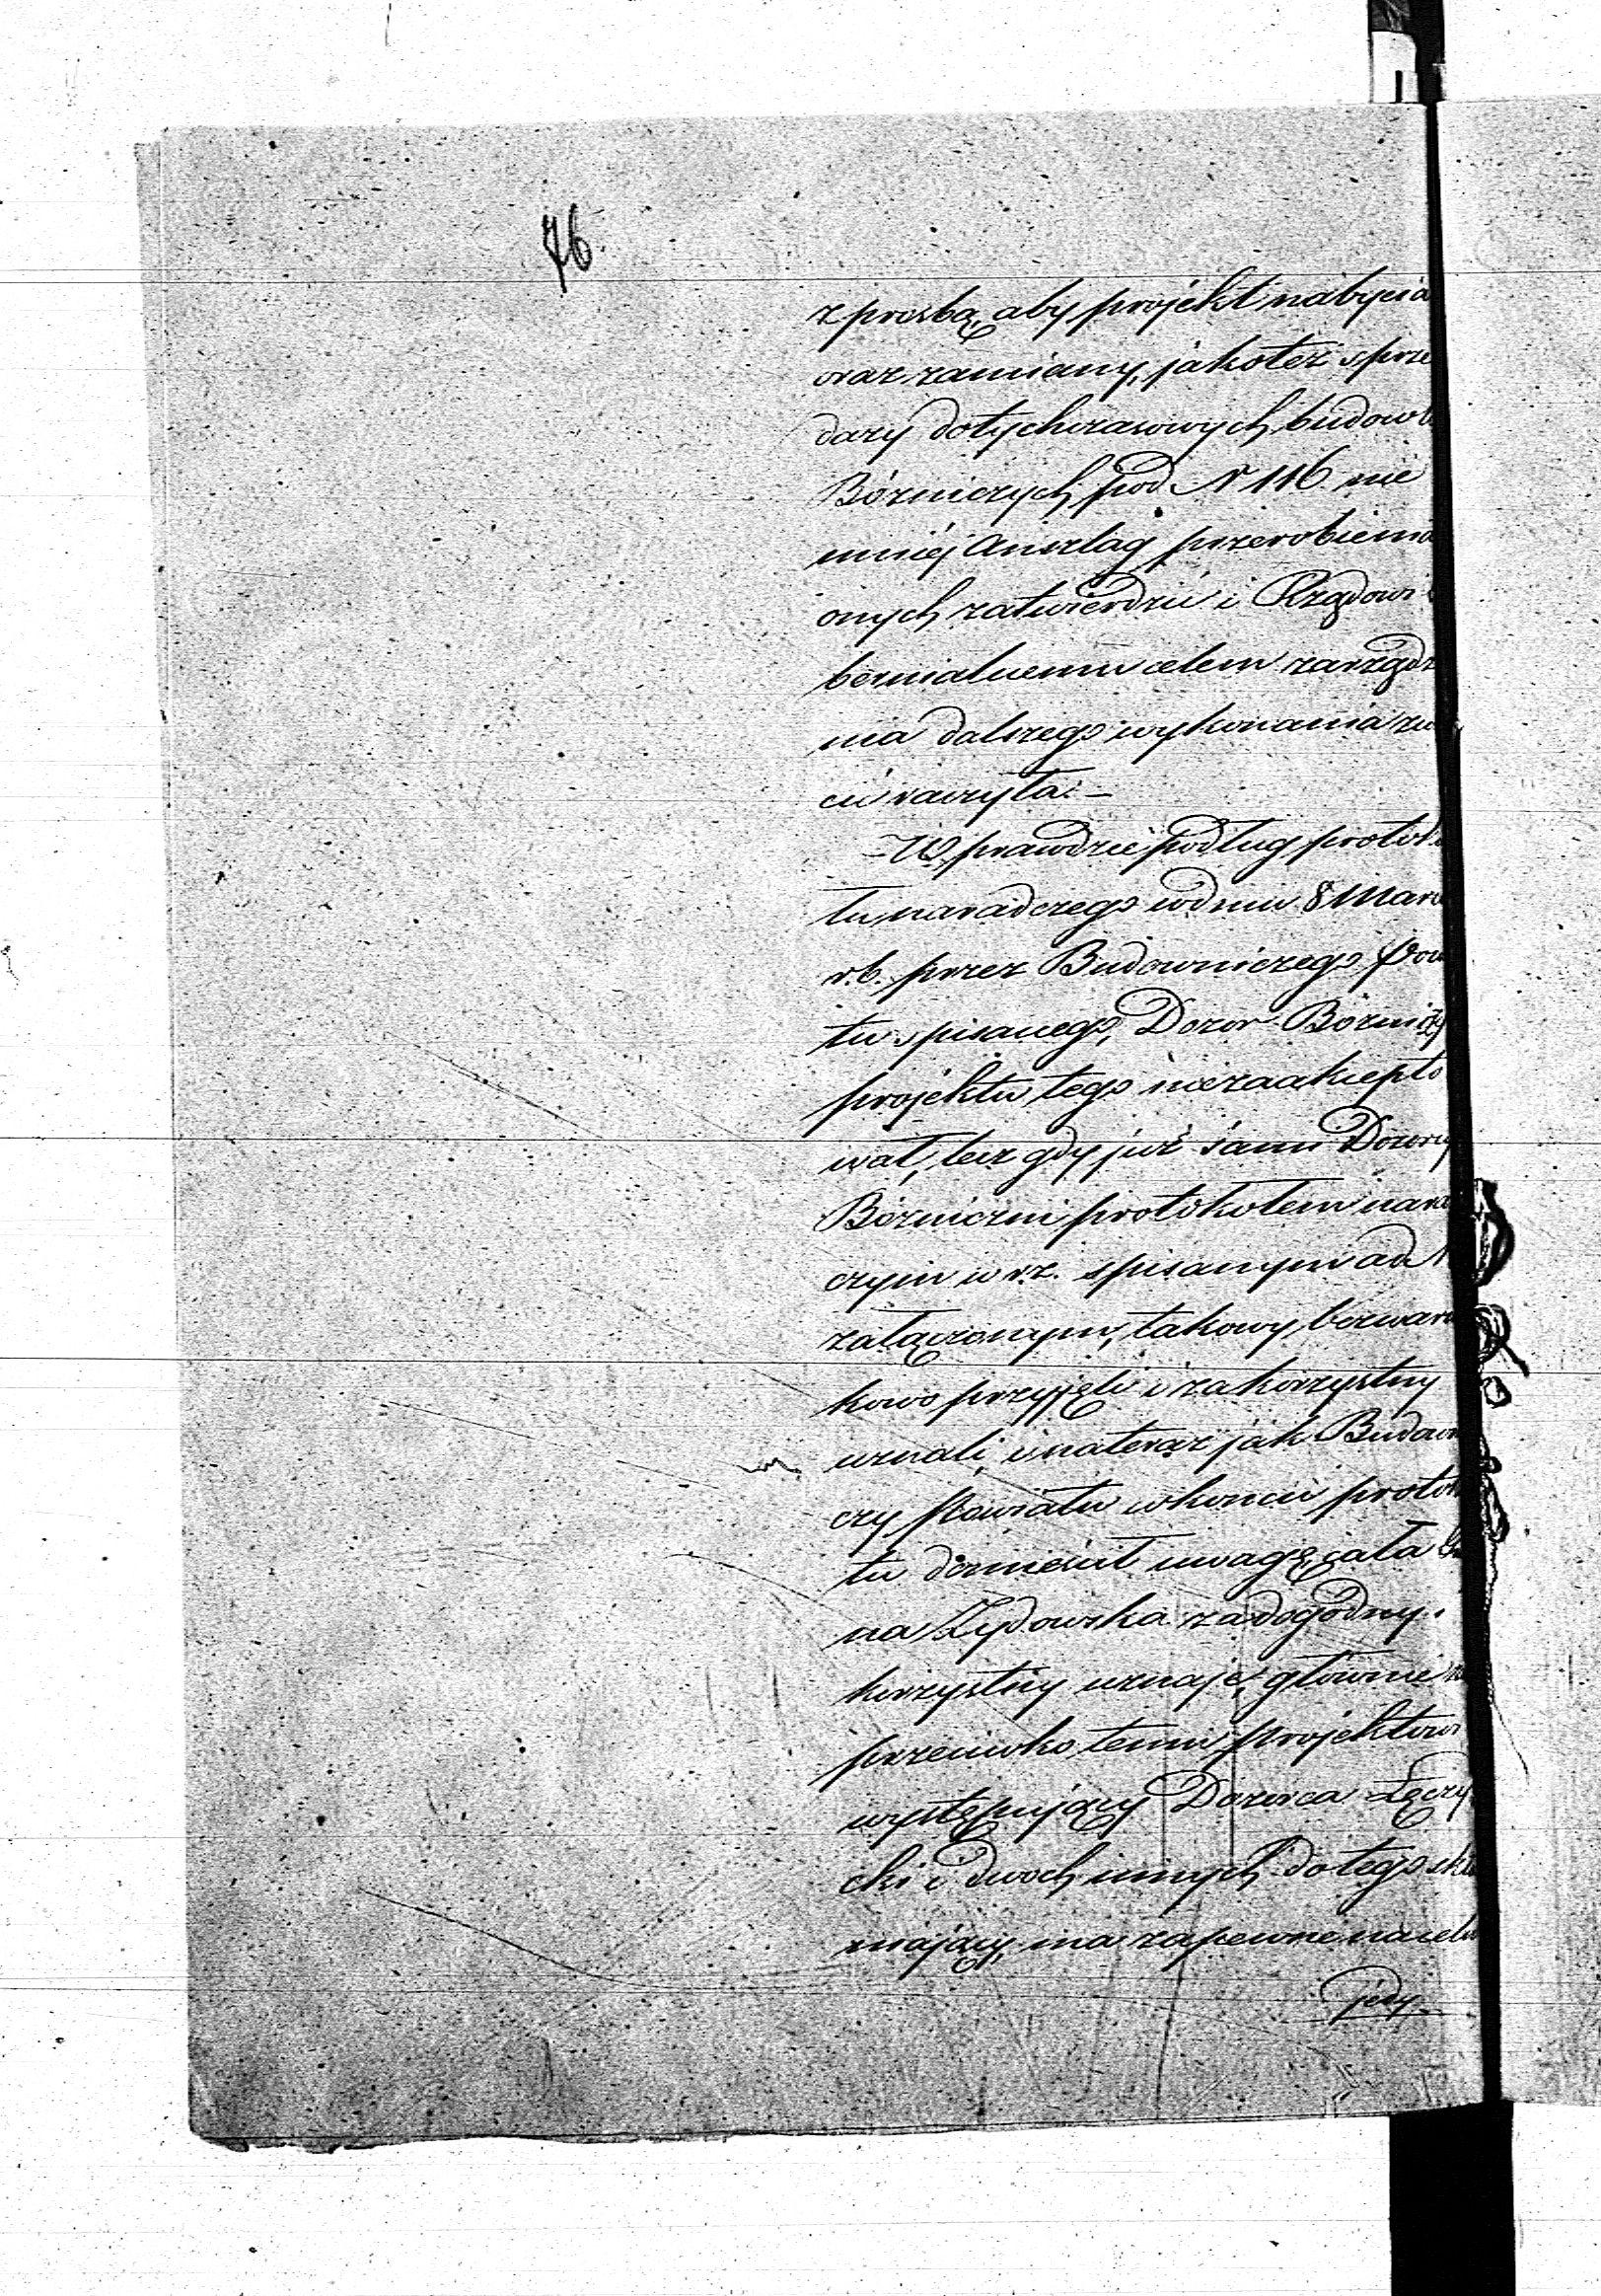 76.
z prośbą, aby projekt nabycia
oraz zamiany, jakoteż sprze
daży dotychczasowych budowl
Bóżniczych pod N 116 nie
mniej Anszlag przerobienia
onych zatwierdzić i Rządowi
bernialnemu celem zarządz
nia dalszego wykonania zw
cić raczyła. –
– W prawdzie podług protok
łu naradczego w dniu 8 Mar
r.b. przez Budowniczego Pow
tu spisanego, Dozor Bóżniczy
projektu tego niezaakcepto
wał, lecz gdy już sami Dozorcy
Bóżniczni protokołem nara
czym w r.z. spisanym ad N
załączonym, takowy bezwaru
kowo przyjęli i za korzystny
uznali, i nateraz jak Budown
czy Powiatu w końcu protok
łu domieścił uwagę, cała G
na Żydowska za dogodny i
korzystny uznaje, głównie z
przeciwko temu projektowi
występujący Dozorca Łęczy
cki i dwoch innych do tego skł
mający, ma zapewne na celu
jedy-